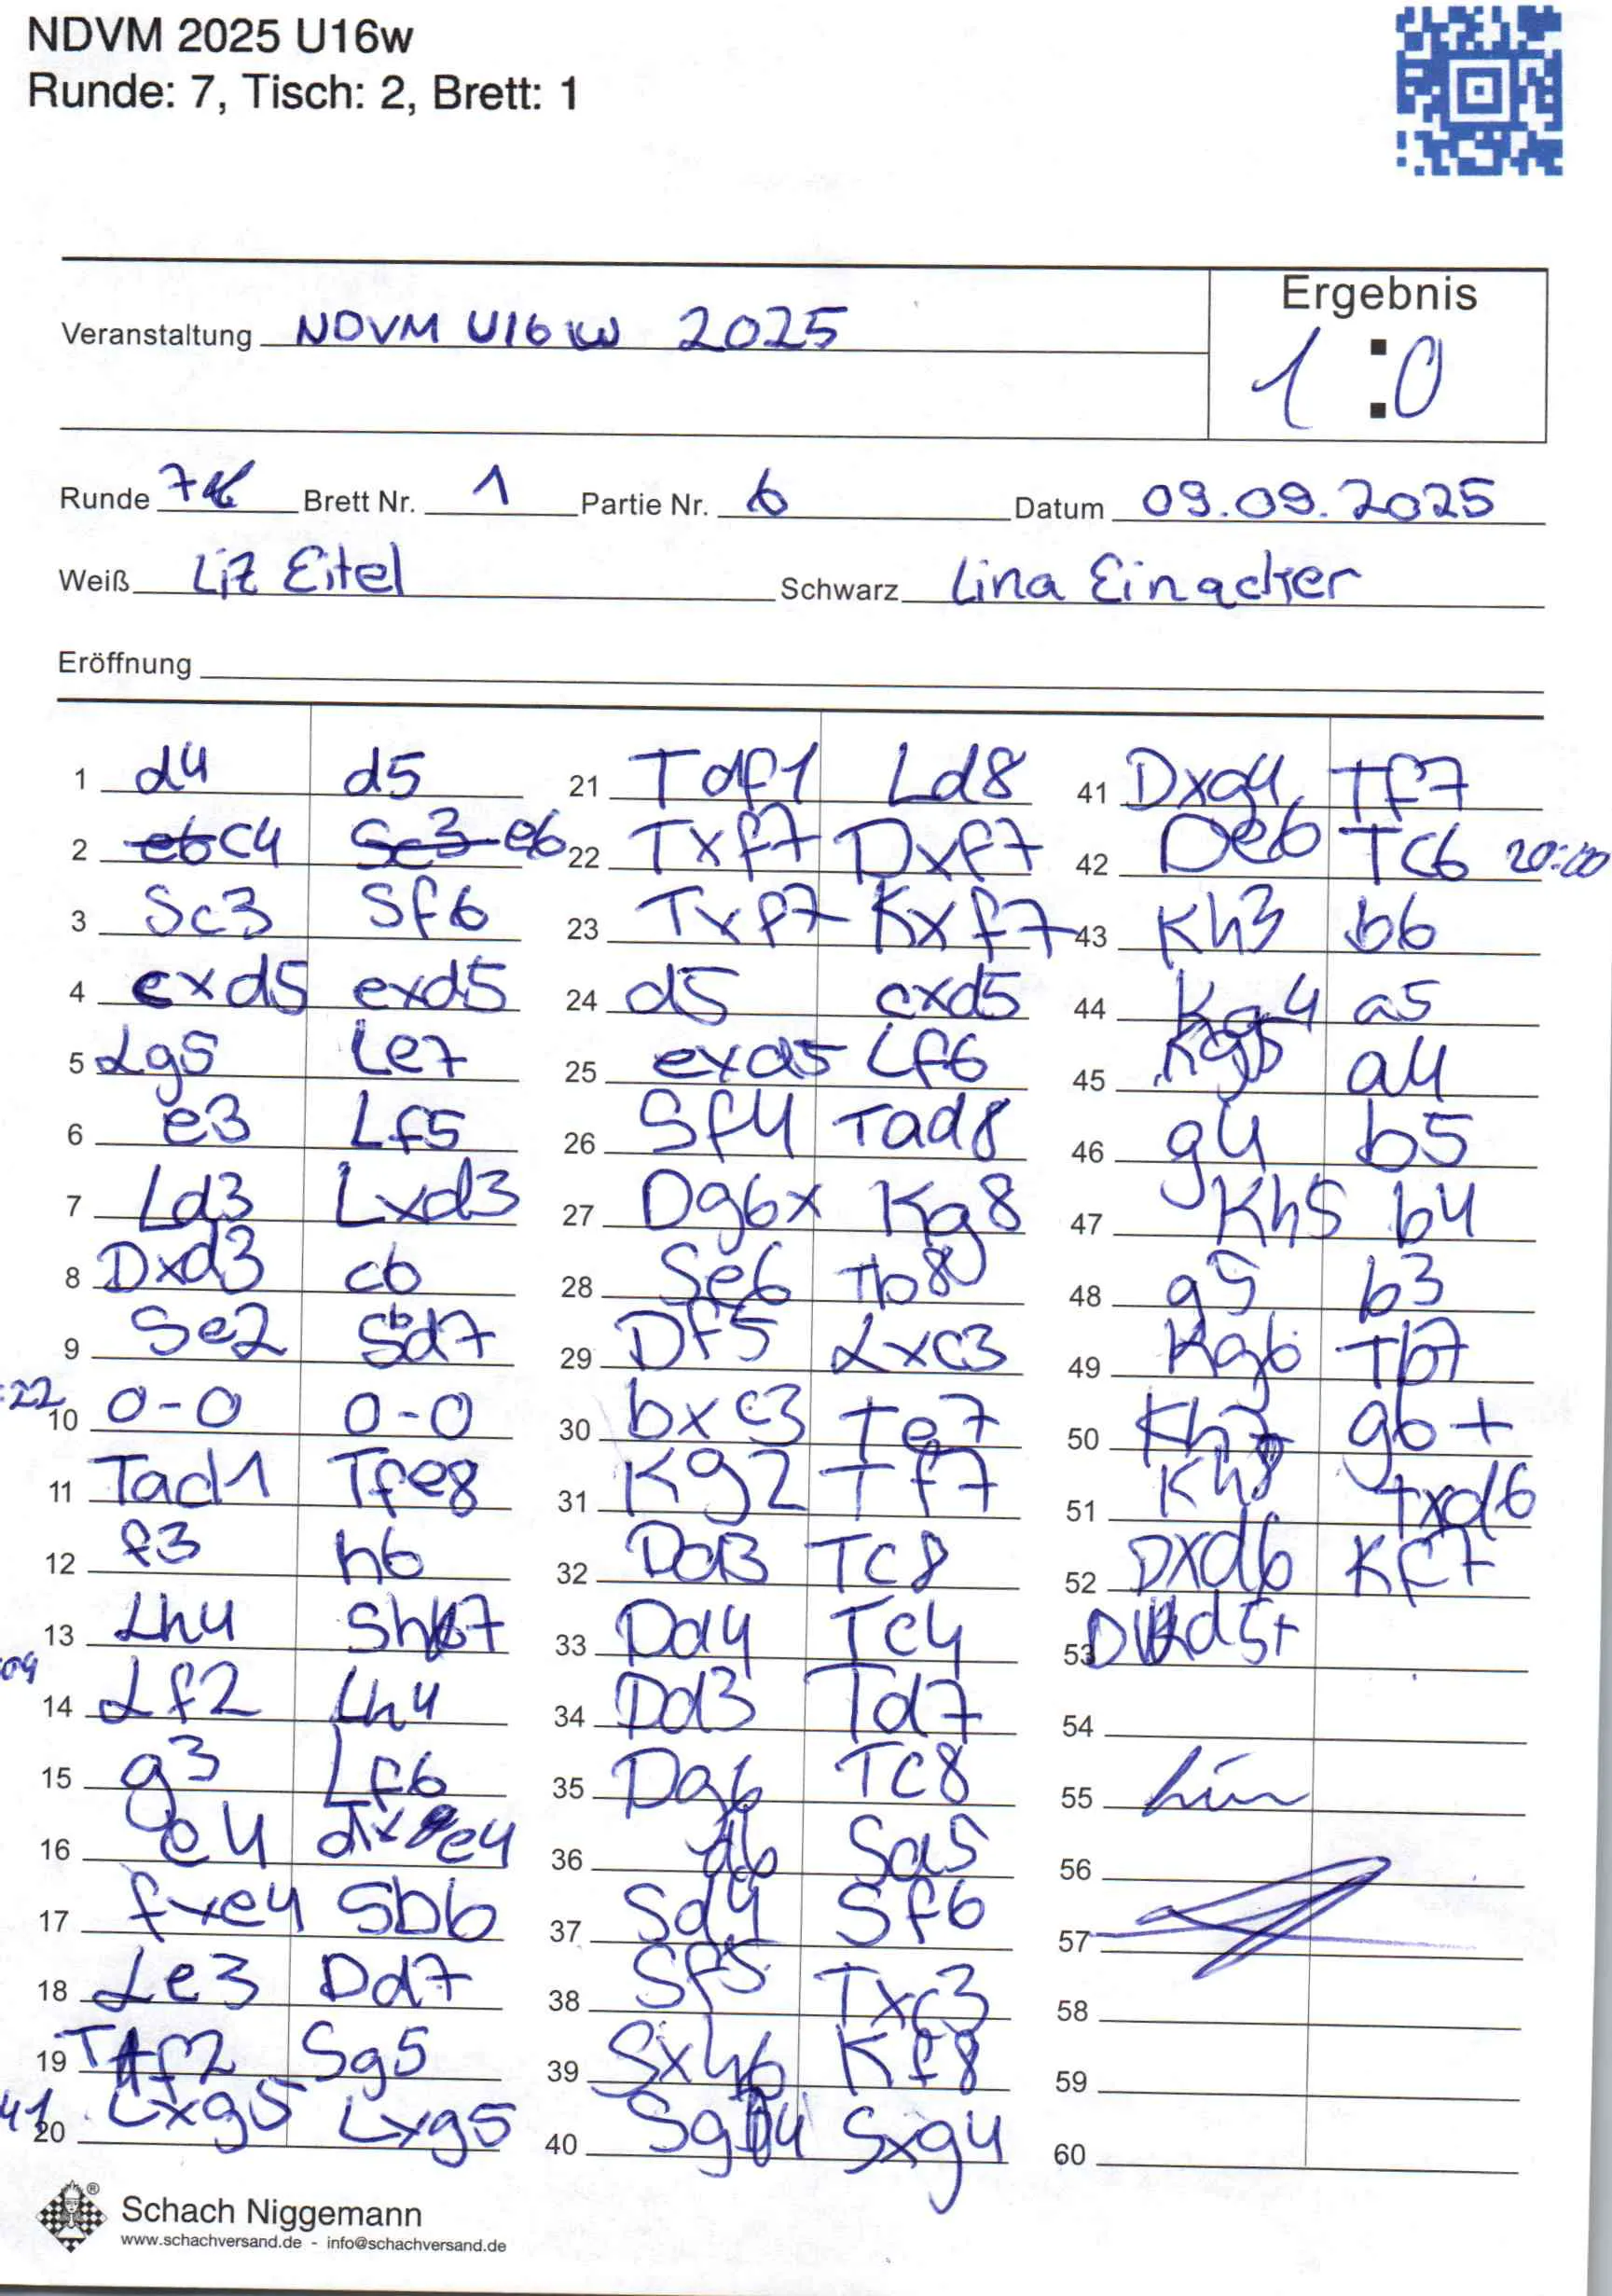 NDVM 2025 U16w
Runde: 7, Tisch: 2, Brett: 1
Ergebnis
Veranstaltung NDVM U16 w 2025
1 : 0
Runde 7 Brett Nr. 1 Partie Nr. 6 Datum 09.09.2025
Weiß Liz Eitel Schwarz Lina Einacker
Eröffnung
1 d4 d5
2 c4 e6
3 Sc3 Sf6
4 cxd5 exd5
5 Lg5 Le7
6 e3 Lf5
7 Ld3 Lxd3
8 Dxd3 c6
9 Se2 Sbd7
:22
10 0-0 0-0
11 Tad1 Tfe8
12 f3 h6
13 Lh4 Sh7
:09
14 Lf2 Lh4
15 g3 Lf6
16 e4 dxe4
17 fxe4 Sb6
18 Le3 Dd7
19 Tf2 Sg5
41
20 Lxg5 Lxg5
21 Tdf1 Ld8
22 Txf7 Dxf7
23 Txf7 Kxf7
24 d5 cxd5
25 exd5 Lf6
26 Sf4 Tad8
27 Dg6x Kg8
28 Se6 Tb8
29 Df5 Lxc3
30 bxc3 Te7
31 Kg2 Tf7
32 Dd3 Tc8
33 Dd4 Tc4
34 Dd3 Td7
35 Dg6 Tc8
36 d6 Sa5
37 Sd4 Sf6
38 Sf5 Txc3
39 Sxh6 Kf8
40 Sg4 Sxg4
41 Dxg4 Tf7
42 De6 Tc6 20:00
43 Kh3 b6
44 Kg4 a5
45 Kg5 a4
46 g4 b5
47 Kh5 b4
48 g5 b3
49 Kg6 Tb7
50 Kh7 g6+
51 Kh8 Txd6
52 Dxd6 Kf7
53 Dd5+
54
55
56
57
58
59
60
Schach Niggemann
www.schachversand.de - info@schachversand.de